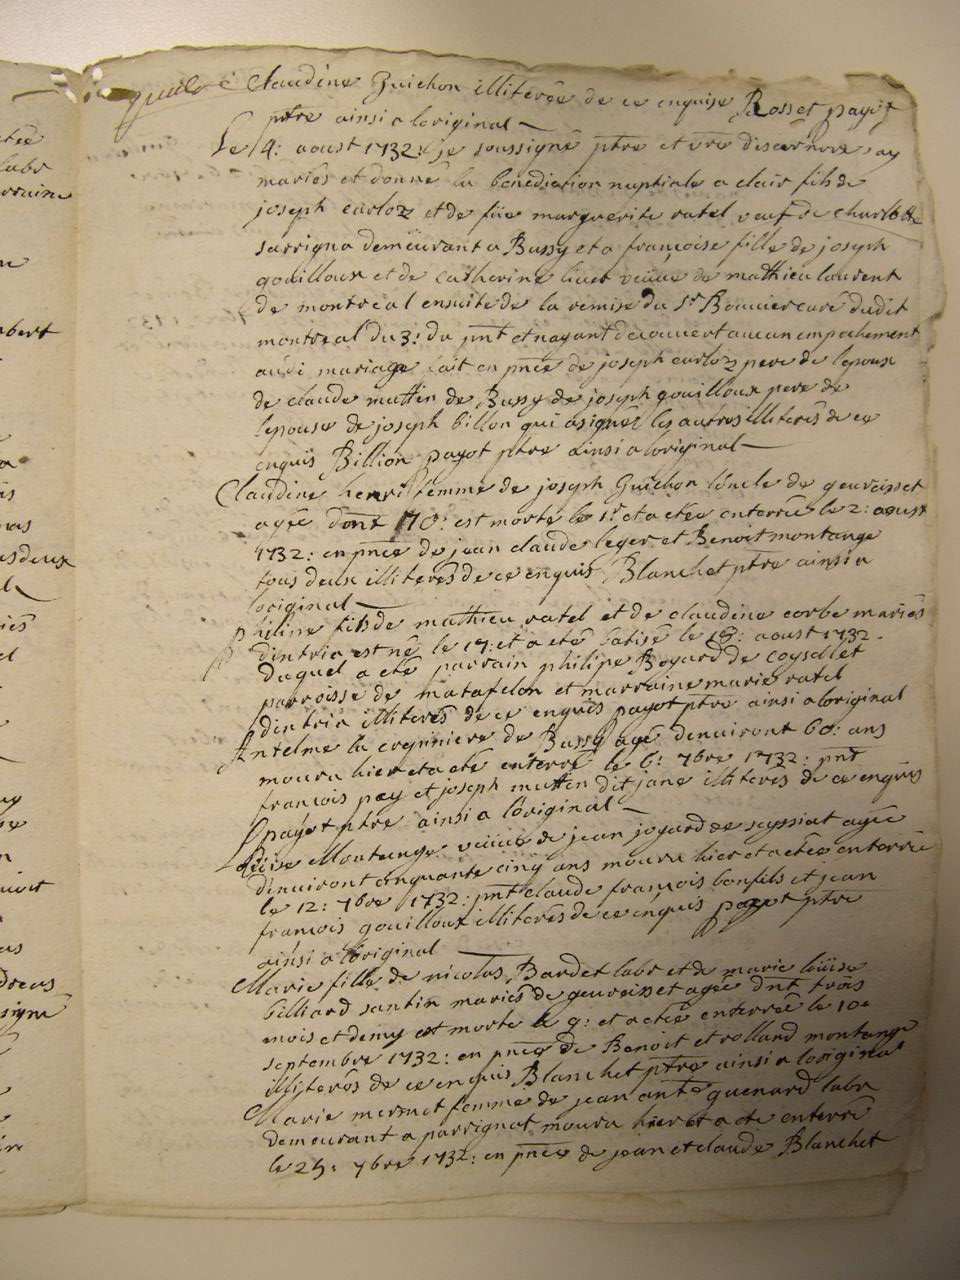 Claudine Guichon illiterée de ce enquise Rosset payot
ptre ainsi a loriginal
Le 4: aoust 1732: je soussigné ptre et vre disernore ay
mariés et donné la benediction nuptiale a clair fils de
joseph carloz et de füe marguerite ratel veuf de charlotte
sarrigna demeurant a Bussy et a francoise fille de joseph
gouilloux et de catherine veüve de mathieu laurent
de montreal ensuite de la remise du Sr Bouvier curé dudit
montreal du 3: du pnt et nayant decouvert aucun empechement
audi mariage fait en pnce de joseph carloz pere de lepoux
de claude muttin de Bussy de joseph gouilloux pere de
lepouse de joseph billon qui a signé les autres illiterés de ce
enquis Billion payot ptre ainsi a loriginal
Claudine henri femme de joseph Guichon loncle de geuraisset
agée dont 70: est morte le 1r et a étée enterrée le 2: aoust
1732: en pnce de jean claude leger et Benoit montange
tous deux illiterés de ce enquis Blanchet ptre ainsi a
loriginal
philipe fils de mathieu ratel et de claudine corbe mariés
dintria est né le 17: et a eté batisé le 18: aoust 1732.
duquel a eté parrain philipe Boyard de coysellet
parroisse de matafelon et marraine marie ratel
dintria illiterés de ce enquis payot ptre ainsi a loriginal
Antelme la cogniniere de Bussy agé denuiront 60: ans
mouru hier et a eté enterré le 6: 7bre 1732: pnt
francois pey et joseph muttin dit jane illiterés de ce enquis
payot ptre ainsi a loriginal
Montange veüve de jean joyard de scyssiat agée
denuiront cinquante cinq ans mouru hier et a étée enterrée
le 12: 7bre 1732: pnt claude francois bonfils et jean
francois gouilloux illiterés de ce enquis payot ptre
ainsi a loriginal
Marie fille de nicolas Bardet labr et de marie loüise
billiard santin mariés de geuraisset agée dnt trois
mois et demy est morte le 9: et a étée enterrée le 10e
septembre 1732: en pnce de Benoit et rolland montange
illiterés de ce enquis Blanchet ptre ainsi a loriginal
Marie mermet femme de jean ante guenard labr
demeurant a parrignat mouru hier et a eté enterré
le 25: 7bre 1732: en pnce de jean et claude Blanchet